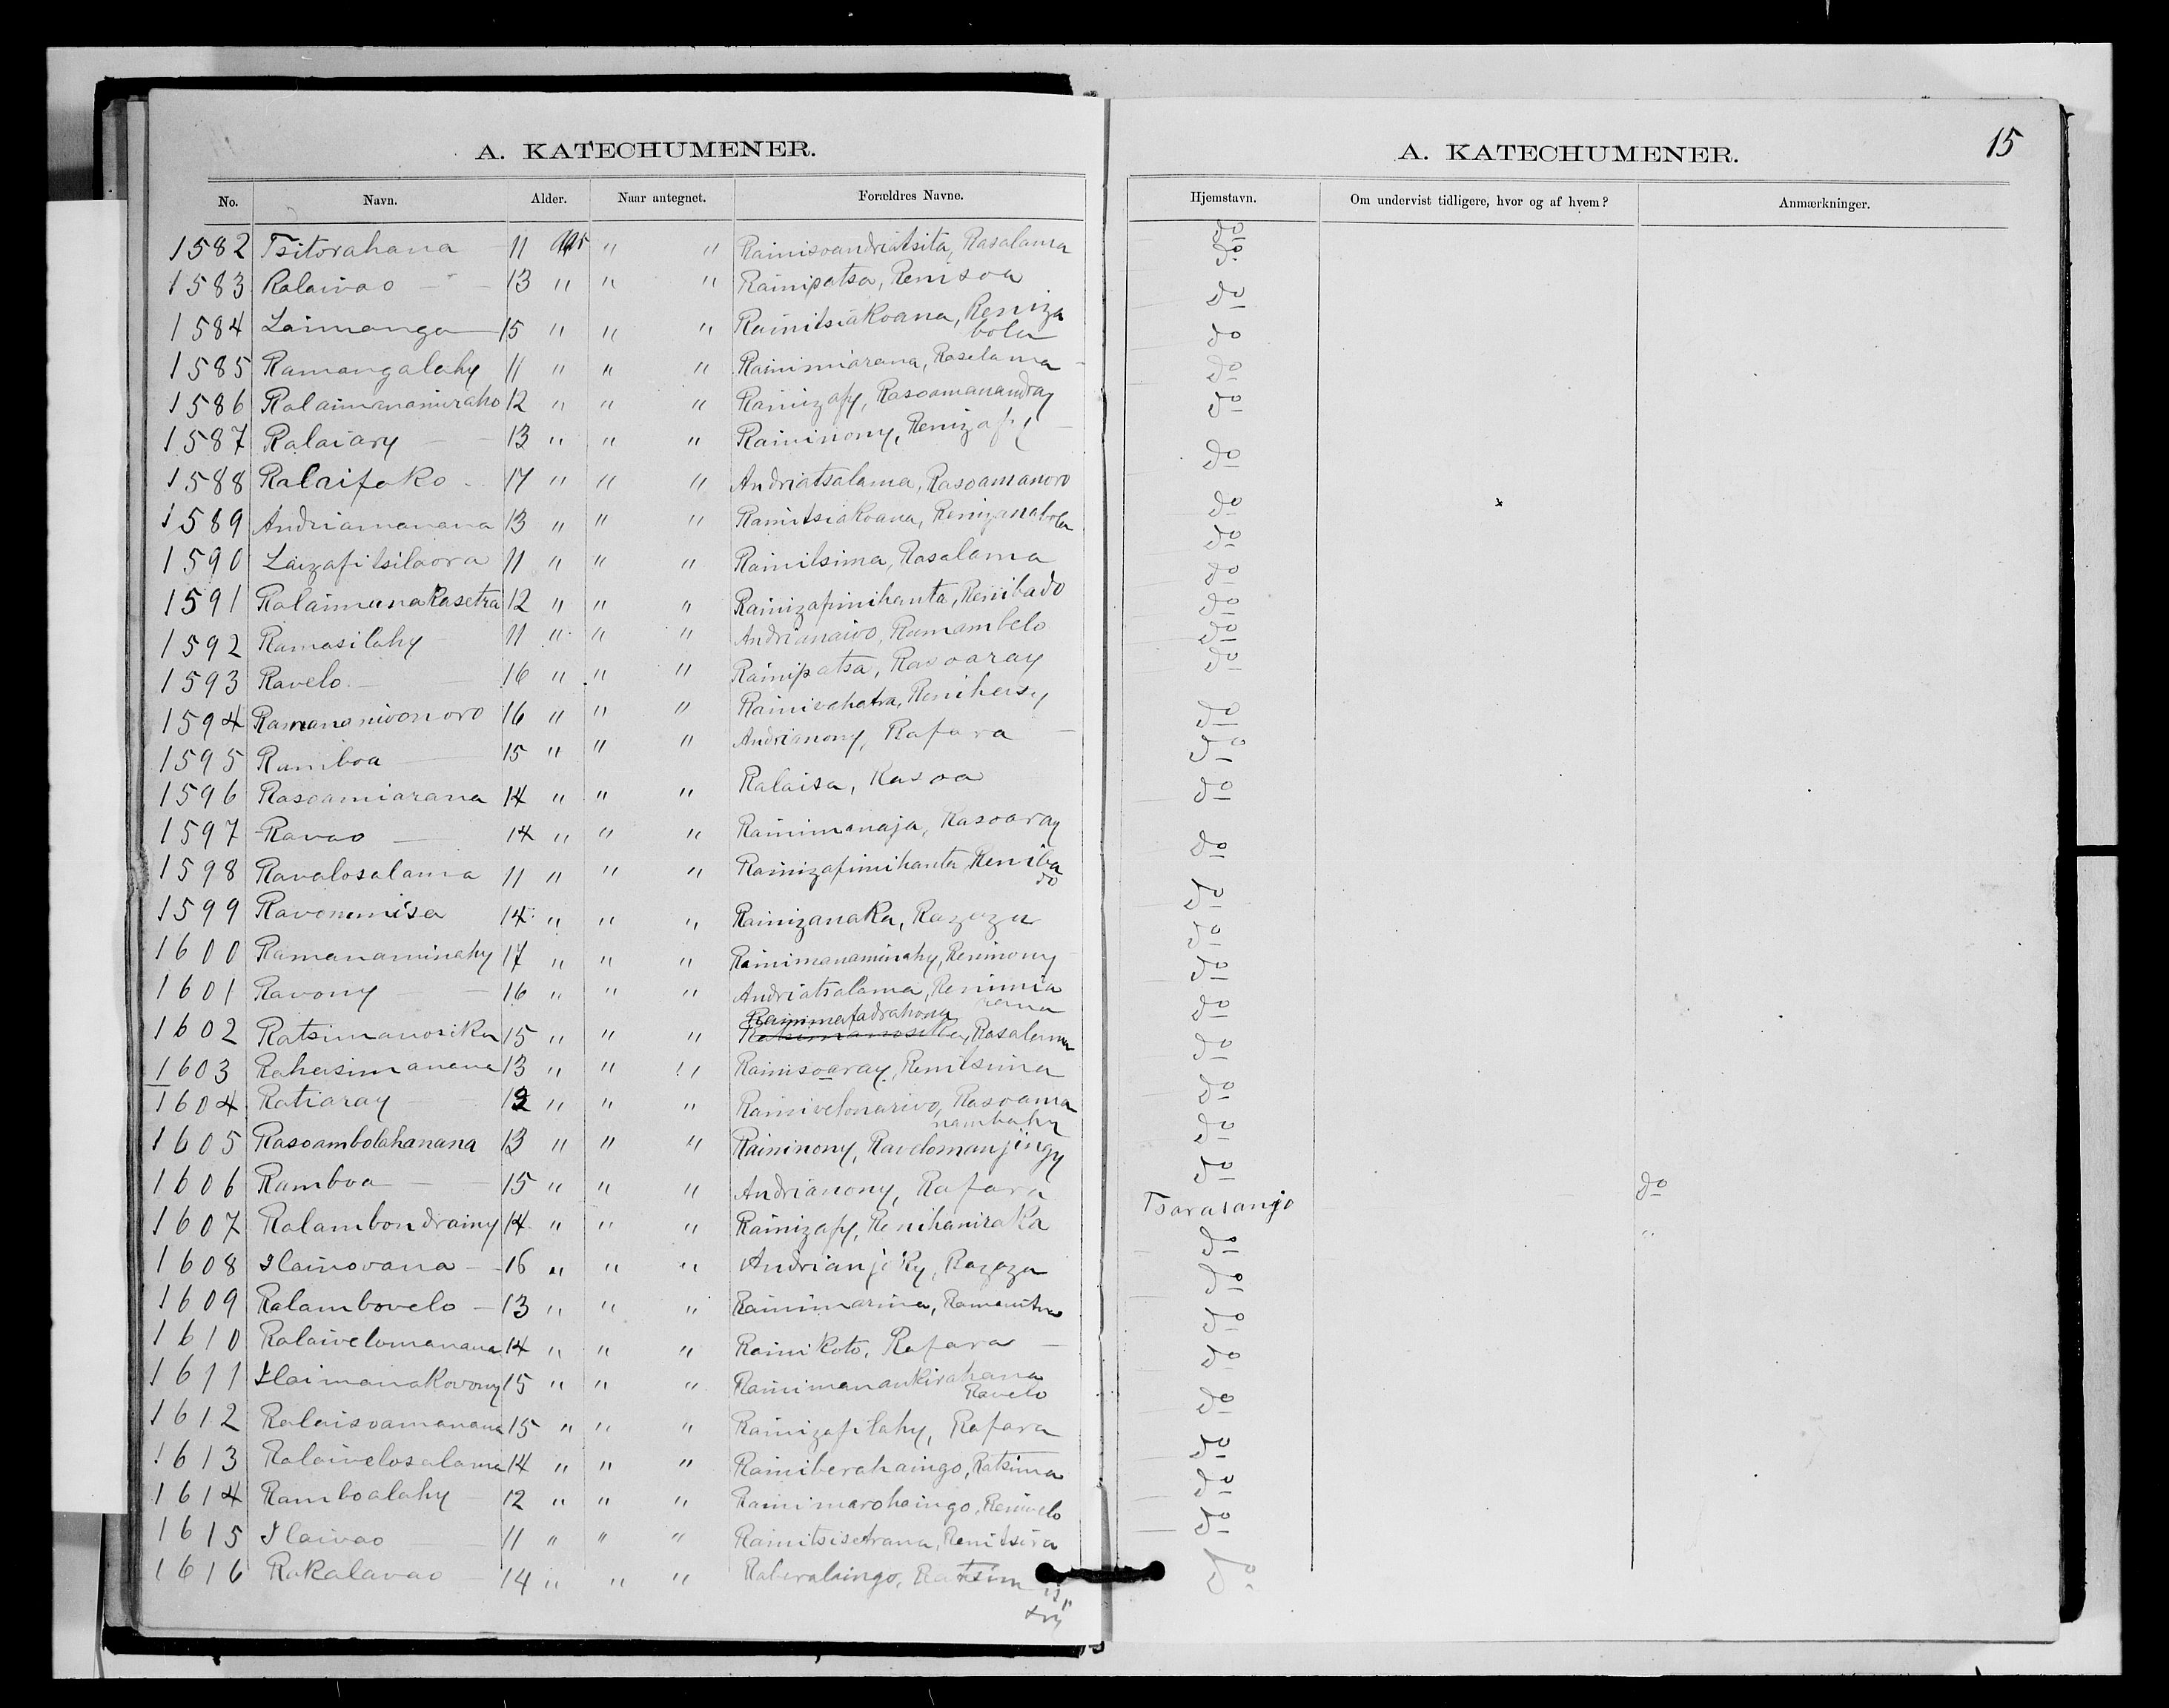 A. KATECHUMENER.
No. Navn. Alder. Naar antegnet. Forældres Navne.
1582 Tsitorahana 11 " " Rainisoandriatsita, Rasalama
1583 Ralaivao 13 " " " Rainipatsa, Renisoa
1584 Laimanga 15 " " " Rainitsiakoana, Reniza
bola
1585 Ramangalahy 11 " " " Rainimiarana, Rasalama
1586 Ralaimananiraho 12 " " " Rainizafy, Rasoamanandray
1587 Ralaiary 13 " " " Raininony, Renizafy
1588 Ralaifoko 17 " " " Andriatsalama, Rasoamanoro
1589 Andriamanana 13 " " " Rainitsiakoana, Renizanabola
1590 Laizafitsilaora 11 " " " Rainitsima, Rasalama
1591 Ralaimanakasetra 12 " " " Rainizafimihanta, Renibado
1592 Ramasilahy 11 " " " Andrianaivo, Ramambelo
1593 Ravelo 16 " " " Rainipatsa, Rasoaray
1594 Ramanonivonoro 16 " " " Rainivahatra, Renihasy
1595 Ramboa 15 " " " Andrianony, Rafara
1596 Rasoamiarana 14 " " " Ralaisa, Rasoa
1597 Ravao 14 " " " Rainimanaja, Rasoaray
1598 Ravalosalama 11 " " " Rainizafimihanta Reniba
do
1599 Ravonimisa 14 " " " Rainizanaka, Razaza
1600 Ramanaminahy 17 " " " Rainimanaminahy, Reninony
1601 Ravony 16 " " " Andriatsalama, Renimia
rana
Rainimafadrahona
1602 Ratsimanosika 15 " " " Ratsimanosika, Rasalama
1603 Rahasimanana 13 " " " Rainisoaray, Renitsima
1604 Ratiaray 12 " " " Rainivelonarivo, Rasoama
nambahy
1605 Rasoambolahanana 13 " " " Raininony, Ravelomanjingy
1606 Ramboa 15 " " " Andrianony, Rafara
1607 Ralambondrainy 14 " " " Rainizafy, Renihaniraka
1608 Ilainovana 16 " " " Andrianjoky, Razaza
1609 Ralambovelo 13 " " " Rainimarina, Ramanitra
1610 Ralaivelomanana 14 " " " Rainikoto, Rafara
1611 Ilaimanakovony 15 " " " Rainimanankirahana
Ravelo
1612 Ralaisoamanana 15 " " " Rainizafilahy, Rafara
1613 Ralaivelosalama 14 " " " Rainiberahaingo, Ratsima
1614 Ramboalahy 12 " " " Rainimarohaingo, Renivelo
1615 Ilaivao 11 " " " Rainitsisetrana, Renitsira
1616 Rakalavao 14 " " "
A. KATECHUMENER. 15
Hjemstavn. Om undervist tidligere, hvor og af hvem? Anmærkninger.
do
do
do
do
do
do
do
do
do
do
do
do
do
do
do
do
do
do
do
do
do
do
do
do
do do
Tsarasanjo "
do
do
do
do
do
do
do
do
do